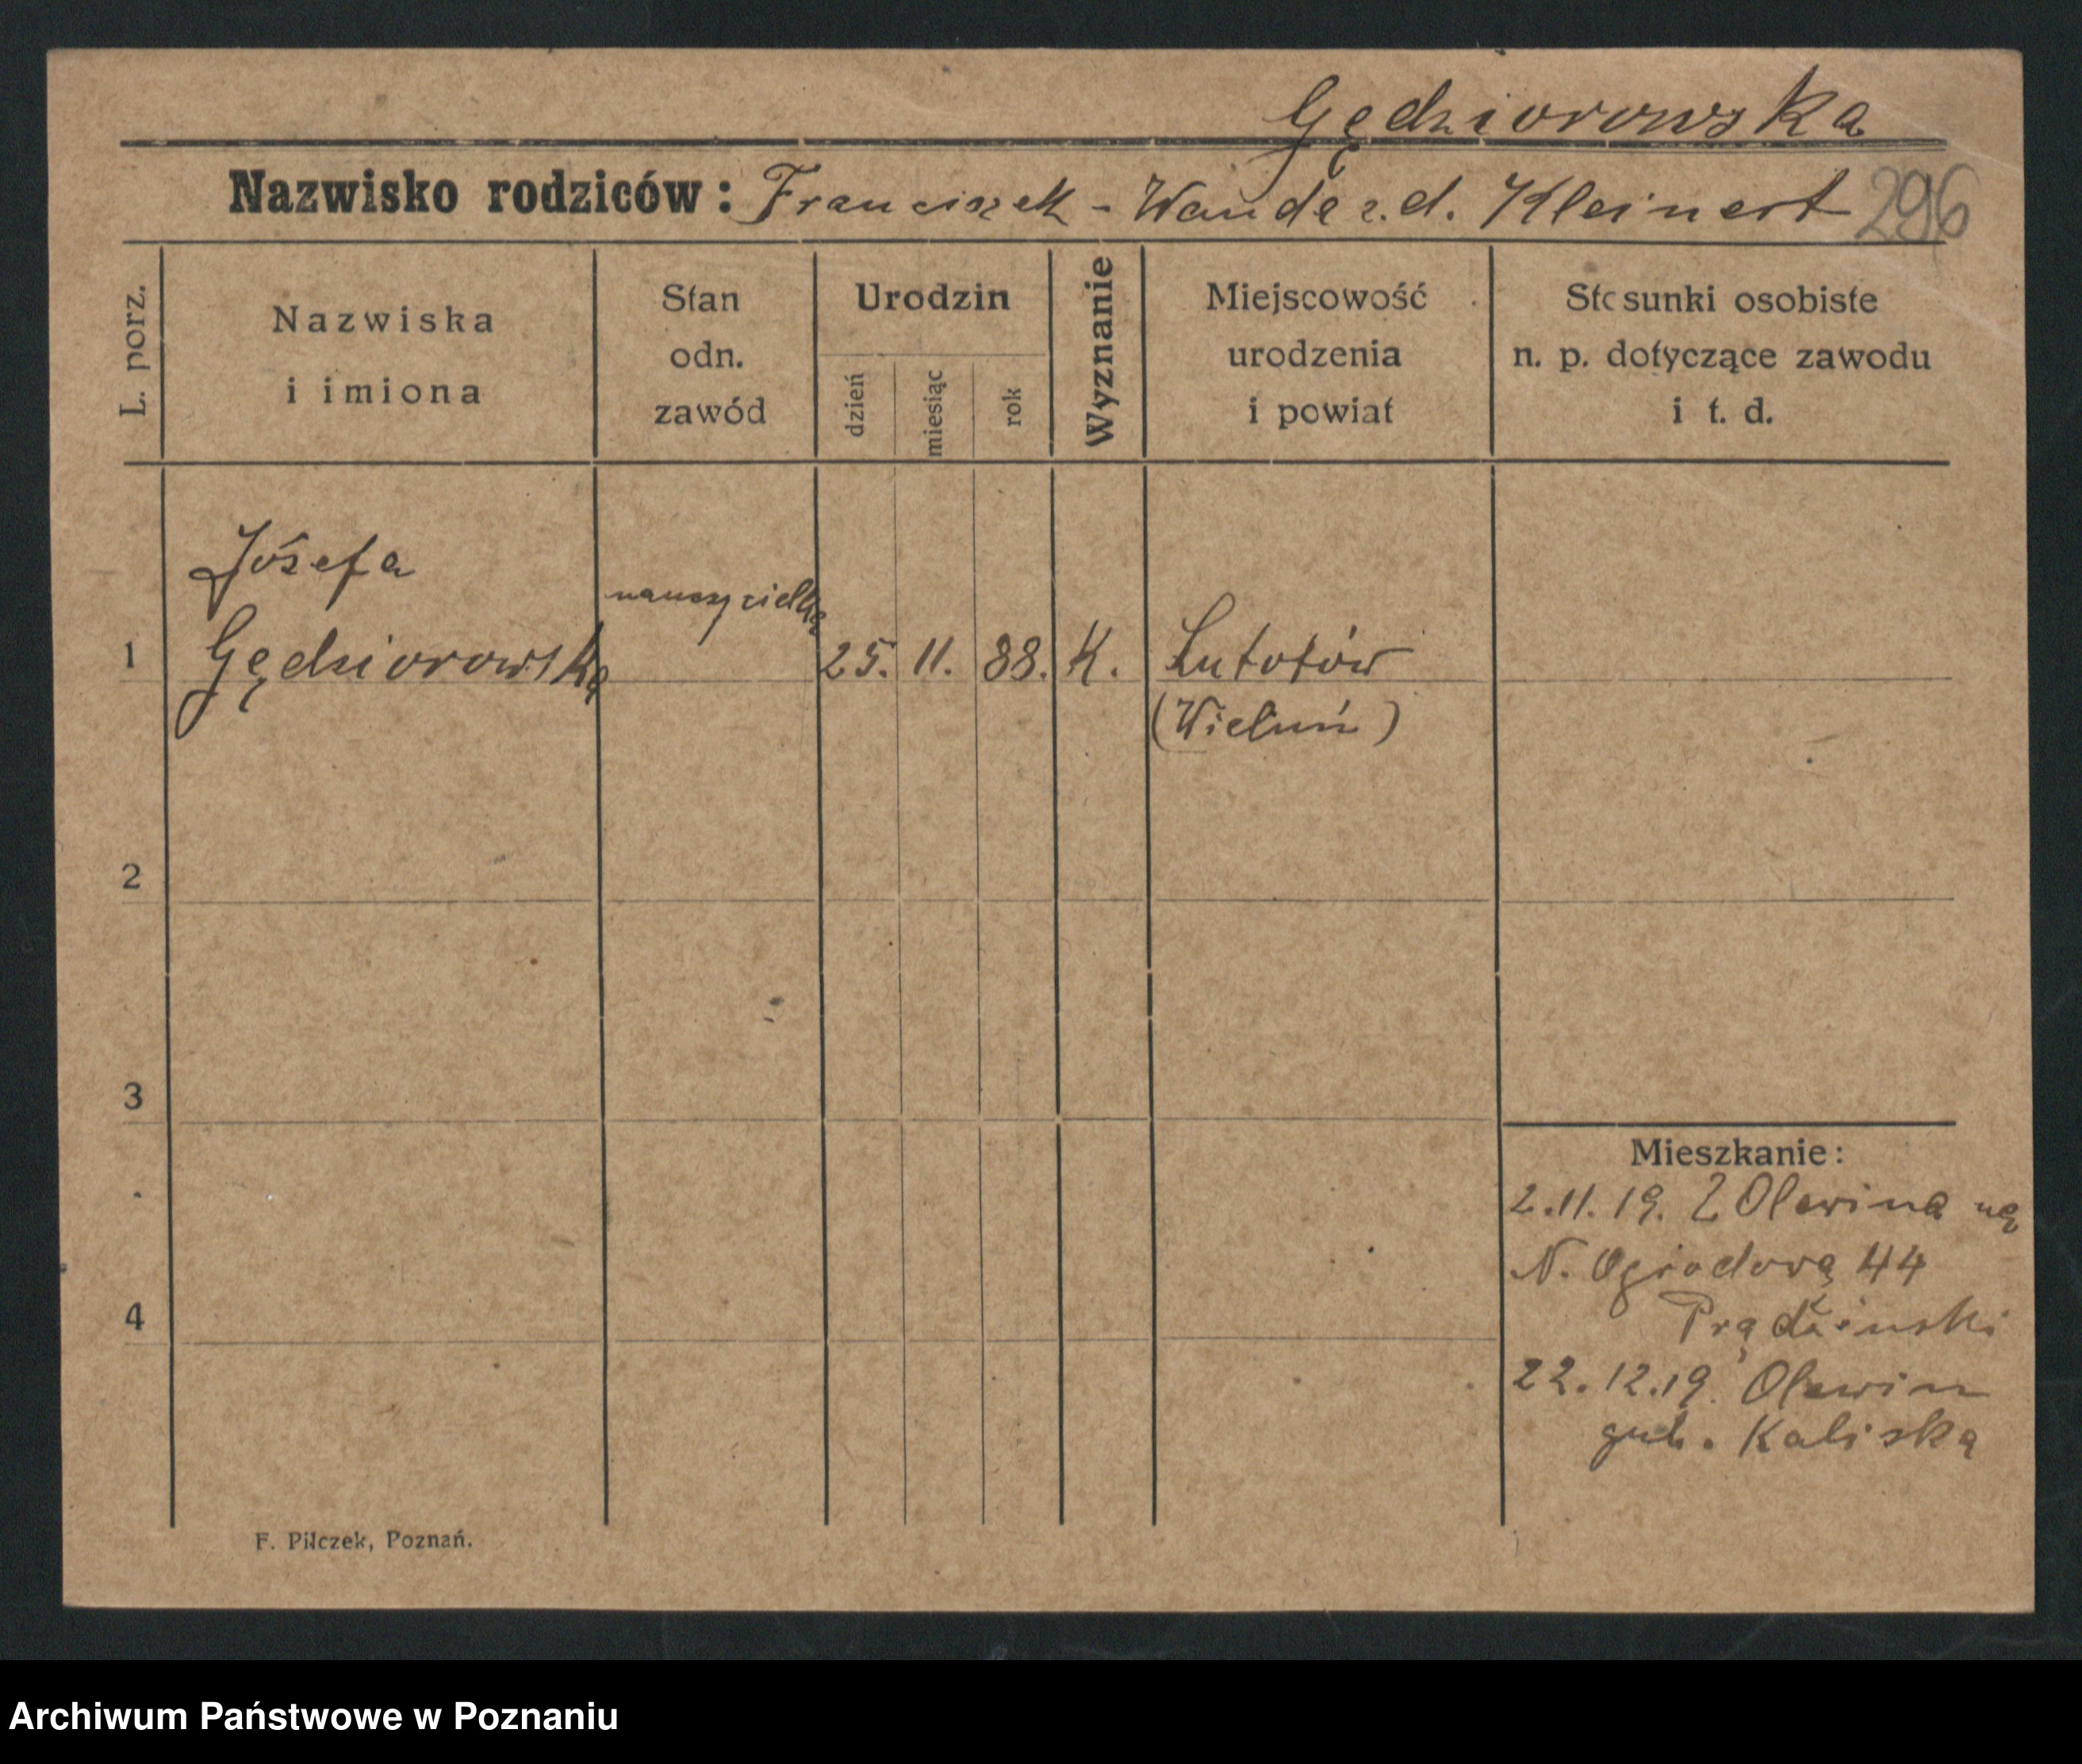 Gędziorowska
Nazwisko rodziców: Franciszek - Wanda z.d. Kleinert 296
L. porz.
Nazwiska
i imiona
Stan
odn.
zawód
Urodzin
dzień
miesiąc
rok
Wyznanie
Miejscowość
urodzenia
i powiat
Stosunki osobiste
n. p. dotyczące zawodu
i t. d.
1
Józefa
Gędziorowska
nauczycielka
25. 11. 88. K.
Lututów
(Wieluń)
2
3
4
Mieszkanie:
2.11.19. Z Olewina na
N. Ogrodową 44
Prądzinski
22.12.19. Olewin
gub. Kaliska
F. Pilczek, Poznań.
Archiwum Państwowe w Poznaniu